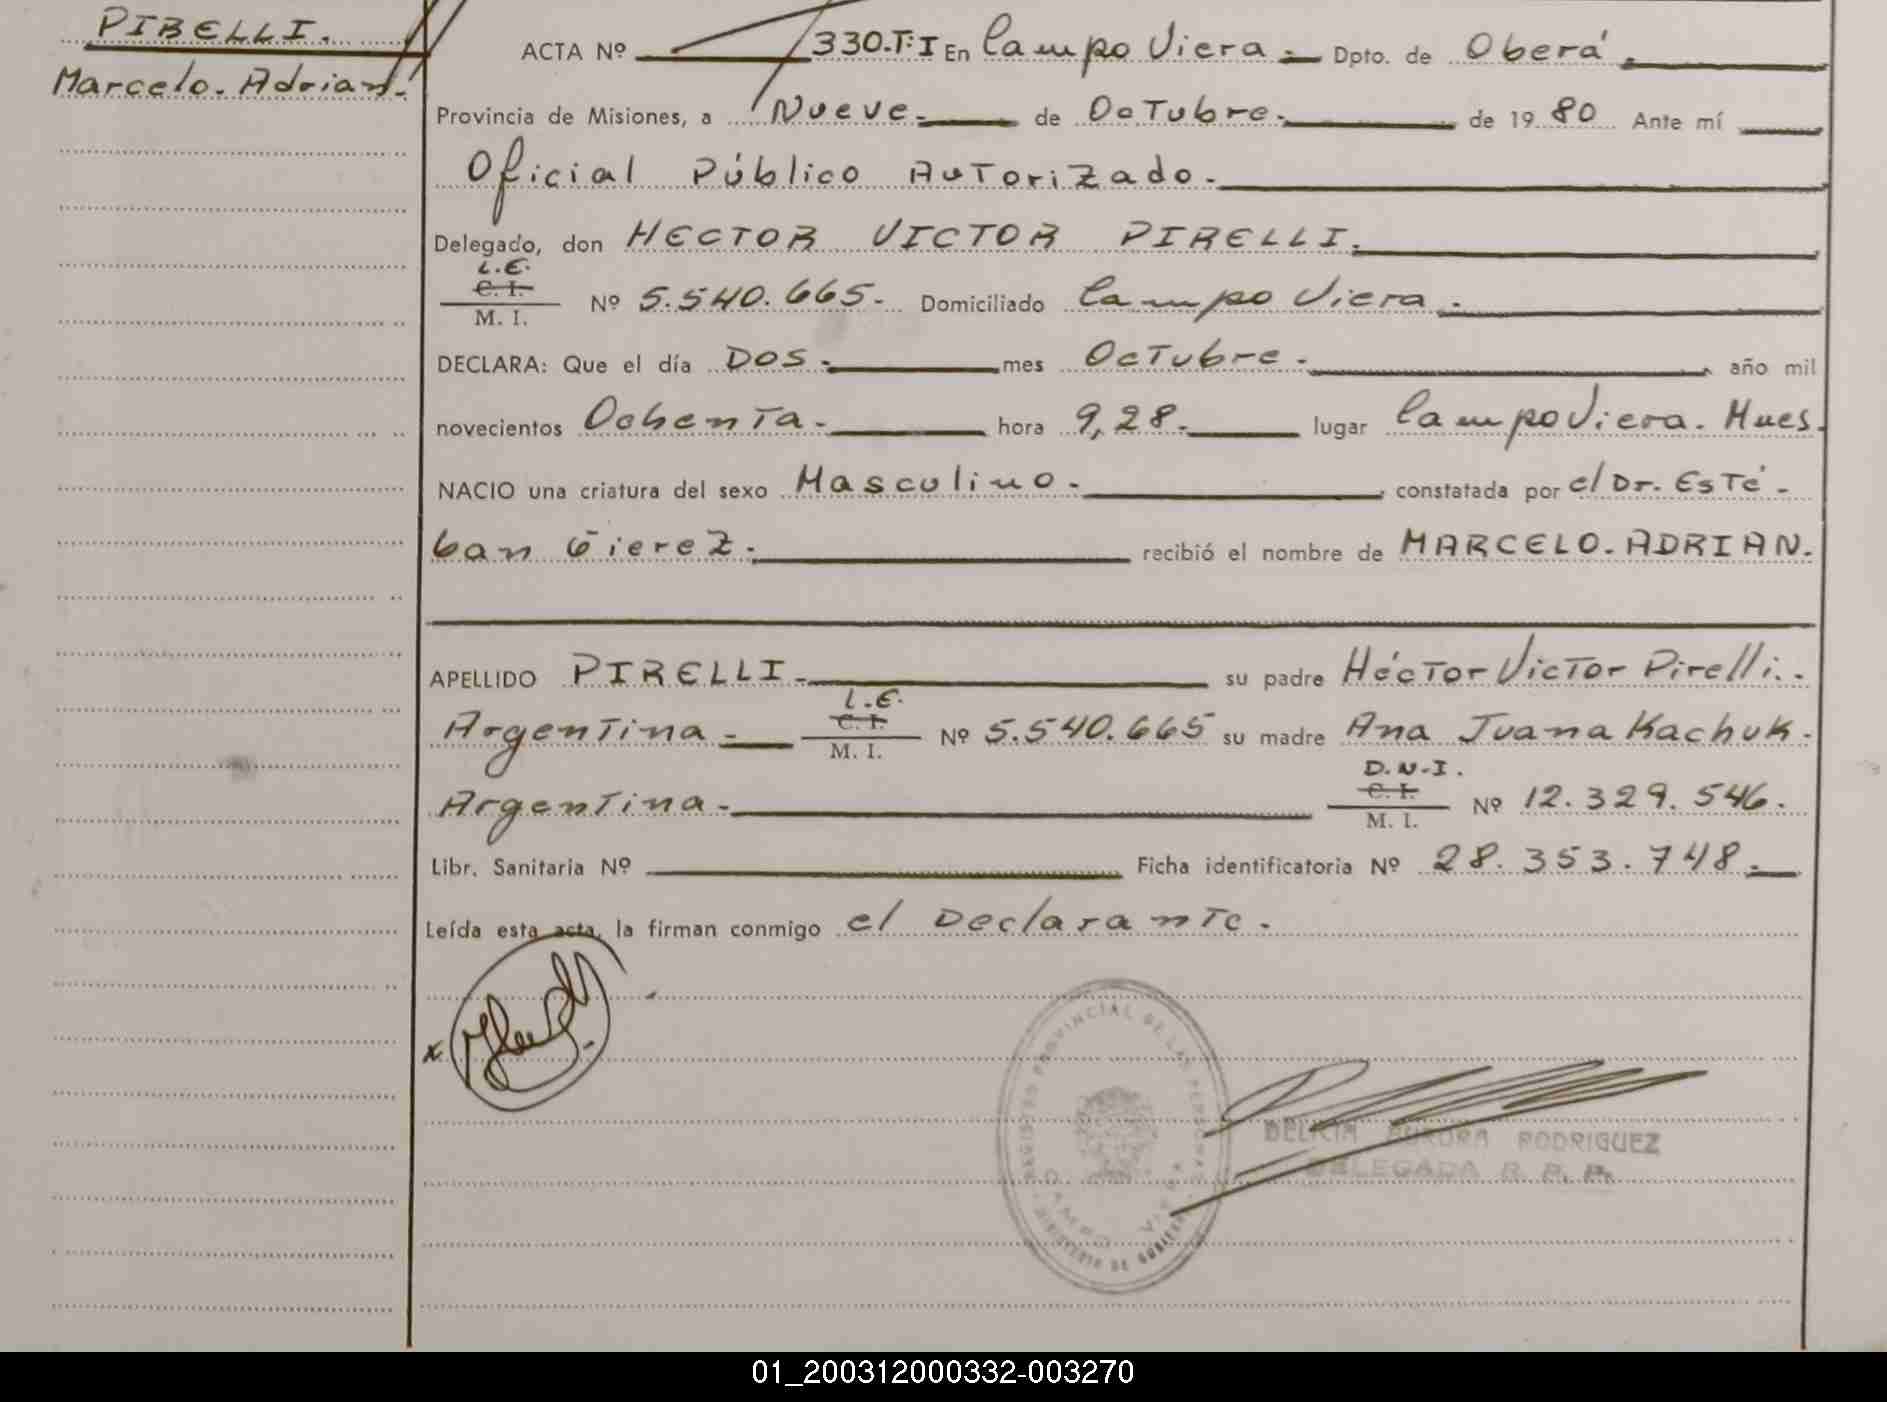 PIRELLI.
Marcelo. Adrian.
ACTA Nº 330.Tº I En Campo Viera. Dpto. de Oberá.
Provincia de Misiones, a Nueve. de Octubre. de 1980 Ante mí
Oficial Público Autorizado.
Delegado, don HECTOR VICTOR PIRELLI.
L.E.
C. I.
M. I.
Nº 5.540.665. Domiciliado Campo Viera.
DECLARA: Que el día Dos. mes Octubre. año mil
novecientos Ochenta. hora 9,28. lugar Campo Viera. Mnes.
NACIO una criatura del sexo Masculino. constatada por el Dr. Esté-
ban Gierez. recibió el nombre de MARCELO. ADRIAN.
APELLIDO PIRELLI. su padre Héctor Victor Pirelli.
L.E.
C. I.
M. I.
Argentina. Nº 5.540.665 su madre Ana Juana Kachuk.
D.N.I.
C. I.
M. I.
Argentina. Nº 12.329.546.
Libr. Sanitaria Nº Ficha identificatoria Nº 28.353.748.
Leída esta acta, la firman conmigo el Declarante.
REGISTRO PROVINCIAL DE LAS PERSONAS
CAMPO VIERA
MINISTERIO DE GOBIERNO
DELICIA AURORA RODRIGUEZ
DELEGADA R. P. P.
01_200312000332-003270